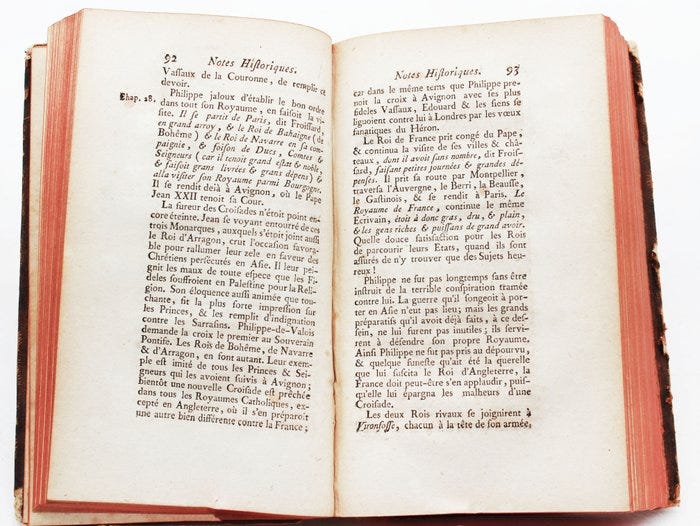 92 Notes Hiſtoriques.
Vaſſaux de la Couronne, de remplir ce
devoir.
Chap. 28. Philippe jaloux d'établir le bon ordre
dans tout ſon Royaume, en faiſoit la vi-
ſite. Il ſe partit de Paris, dit Froiſſard,
en grand arroy, & le Roi de Bahaigne (de
Bohême) & le Roi de Navarre en ſa com-
paignie, & foiſon de Ducs, Comtes &
Seigneurs (car il tenoit grand eſtat & noble,
& faiſoit grans livrées & grans dépens) &
alla viſiter ſon Royaume parmi Bourgogne.
Il ſe rendit delà à Avignon, où le Pape
Jean XXII tenoit ſa Cour.
La fureur des Croiſades n'étoit point en-
core éteinte. Jean ſe voyant entouré de ces
trois Monarques, auxquels s'étoit joint auſſi
le Roi d'Arragon, crut l'occaſion favora-
ble pour rallumer leur zele en faveur des
Chrétiens perſécutés en Aſie. Il leur pei-
gnit les maux de toute eſpece que les Fi-
deles ſouffroient en Paleſtine pour la Reli-
gion. Son éloquence auſſi animée que tou-
chante, fit la plus forte impreſſion ſur
les Princes, & les remplit d'indignation
contre les Sarraſins. Philippe-de-Valois
demande la croix le premier au Souverain
Pontife. Les Rois de Bohême, de Navarre
& d'Arragon, en font autant. Leur exem-
ple eſt imité de tous les Princes & Sei-
gneurs qui les avoient ſuivis à Avignon;
bientôt une nouvelle Croiſade eſt prêchée
dans tous les Royaumes Catholiques, ex-
cepté en Angleterre, où il s'en préparoit
une autre bien différente contre la France;
Notes Hiſtoriques. 93
car dans le même tems que Philippe pre-
noit la croix à Avignon avec ſes plus
fideles Vaſſaux, Edouard & les ſiens ſe
liguoient contre lui à Londres par les vœux
fanatiques du Héron.
Le Roi de France prit congé du Pape,
& continua la viſite de ſes villes & châ-
teaux, dont il avoit ſans nombre, dit Froiſ-
ſard, faiſant petites journées & grandes dé-
penſes. Il prit ſa route par Montpellier,
traverſa l'Auvergne, le Berri, la Beauſſe,
le Gaſtinois, & ſe rendit à Paris. Le
Royaume de France, continue le même
Ecrivain, étoit à donc gras, dru, & plain,
& les gens riches & puiſſans de grand avoir.
Quelle douce ſatisfaction pour les Rois
de parcourir leurs Etats, quand ils ſont
aſſurés de n'y trouver que des Sujets heu-
reux!
Philippe ne fut pas longtemps ſans être
inſtruit de la terrible conſpiration tramée
contre lui. La guerre qu'il ſongeoit à por-
ter en Aſie n'eut pas lieu; mais les grands
préparatifs qu'il avoit déjà faits, à ce deſ-
ſein, ne lui furent pas inutiles; ils ſervi-
rent à défendre ſon propre Royaume.
Ainſi Philippe ne fut pas pris au dépourvu,
& quelque funeſte qu'ait été la querelle
que lui ſuſcita le Roi d'Angleterre, la
France doit peut-être s'en applaudir, puiſ-
qu'elle lui épargna les malheurs d'une
Croiſade.
Les deux Rois rivaux ſe joignirent à
Vironfoſſe, chacun à la tête de ſon armée,